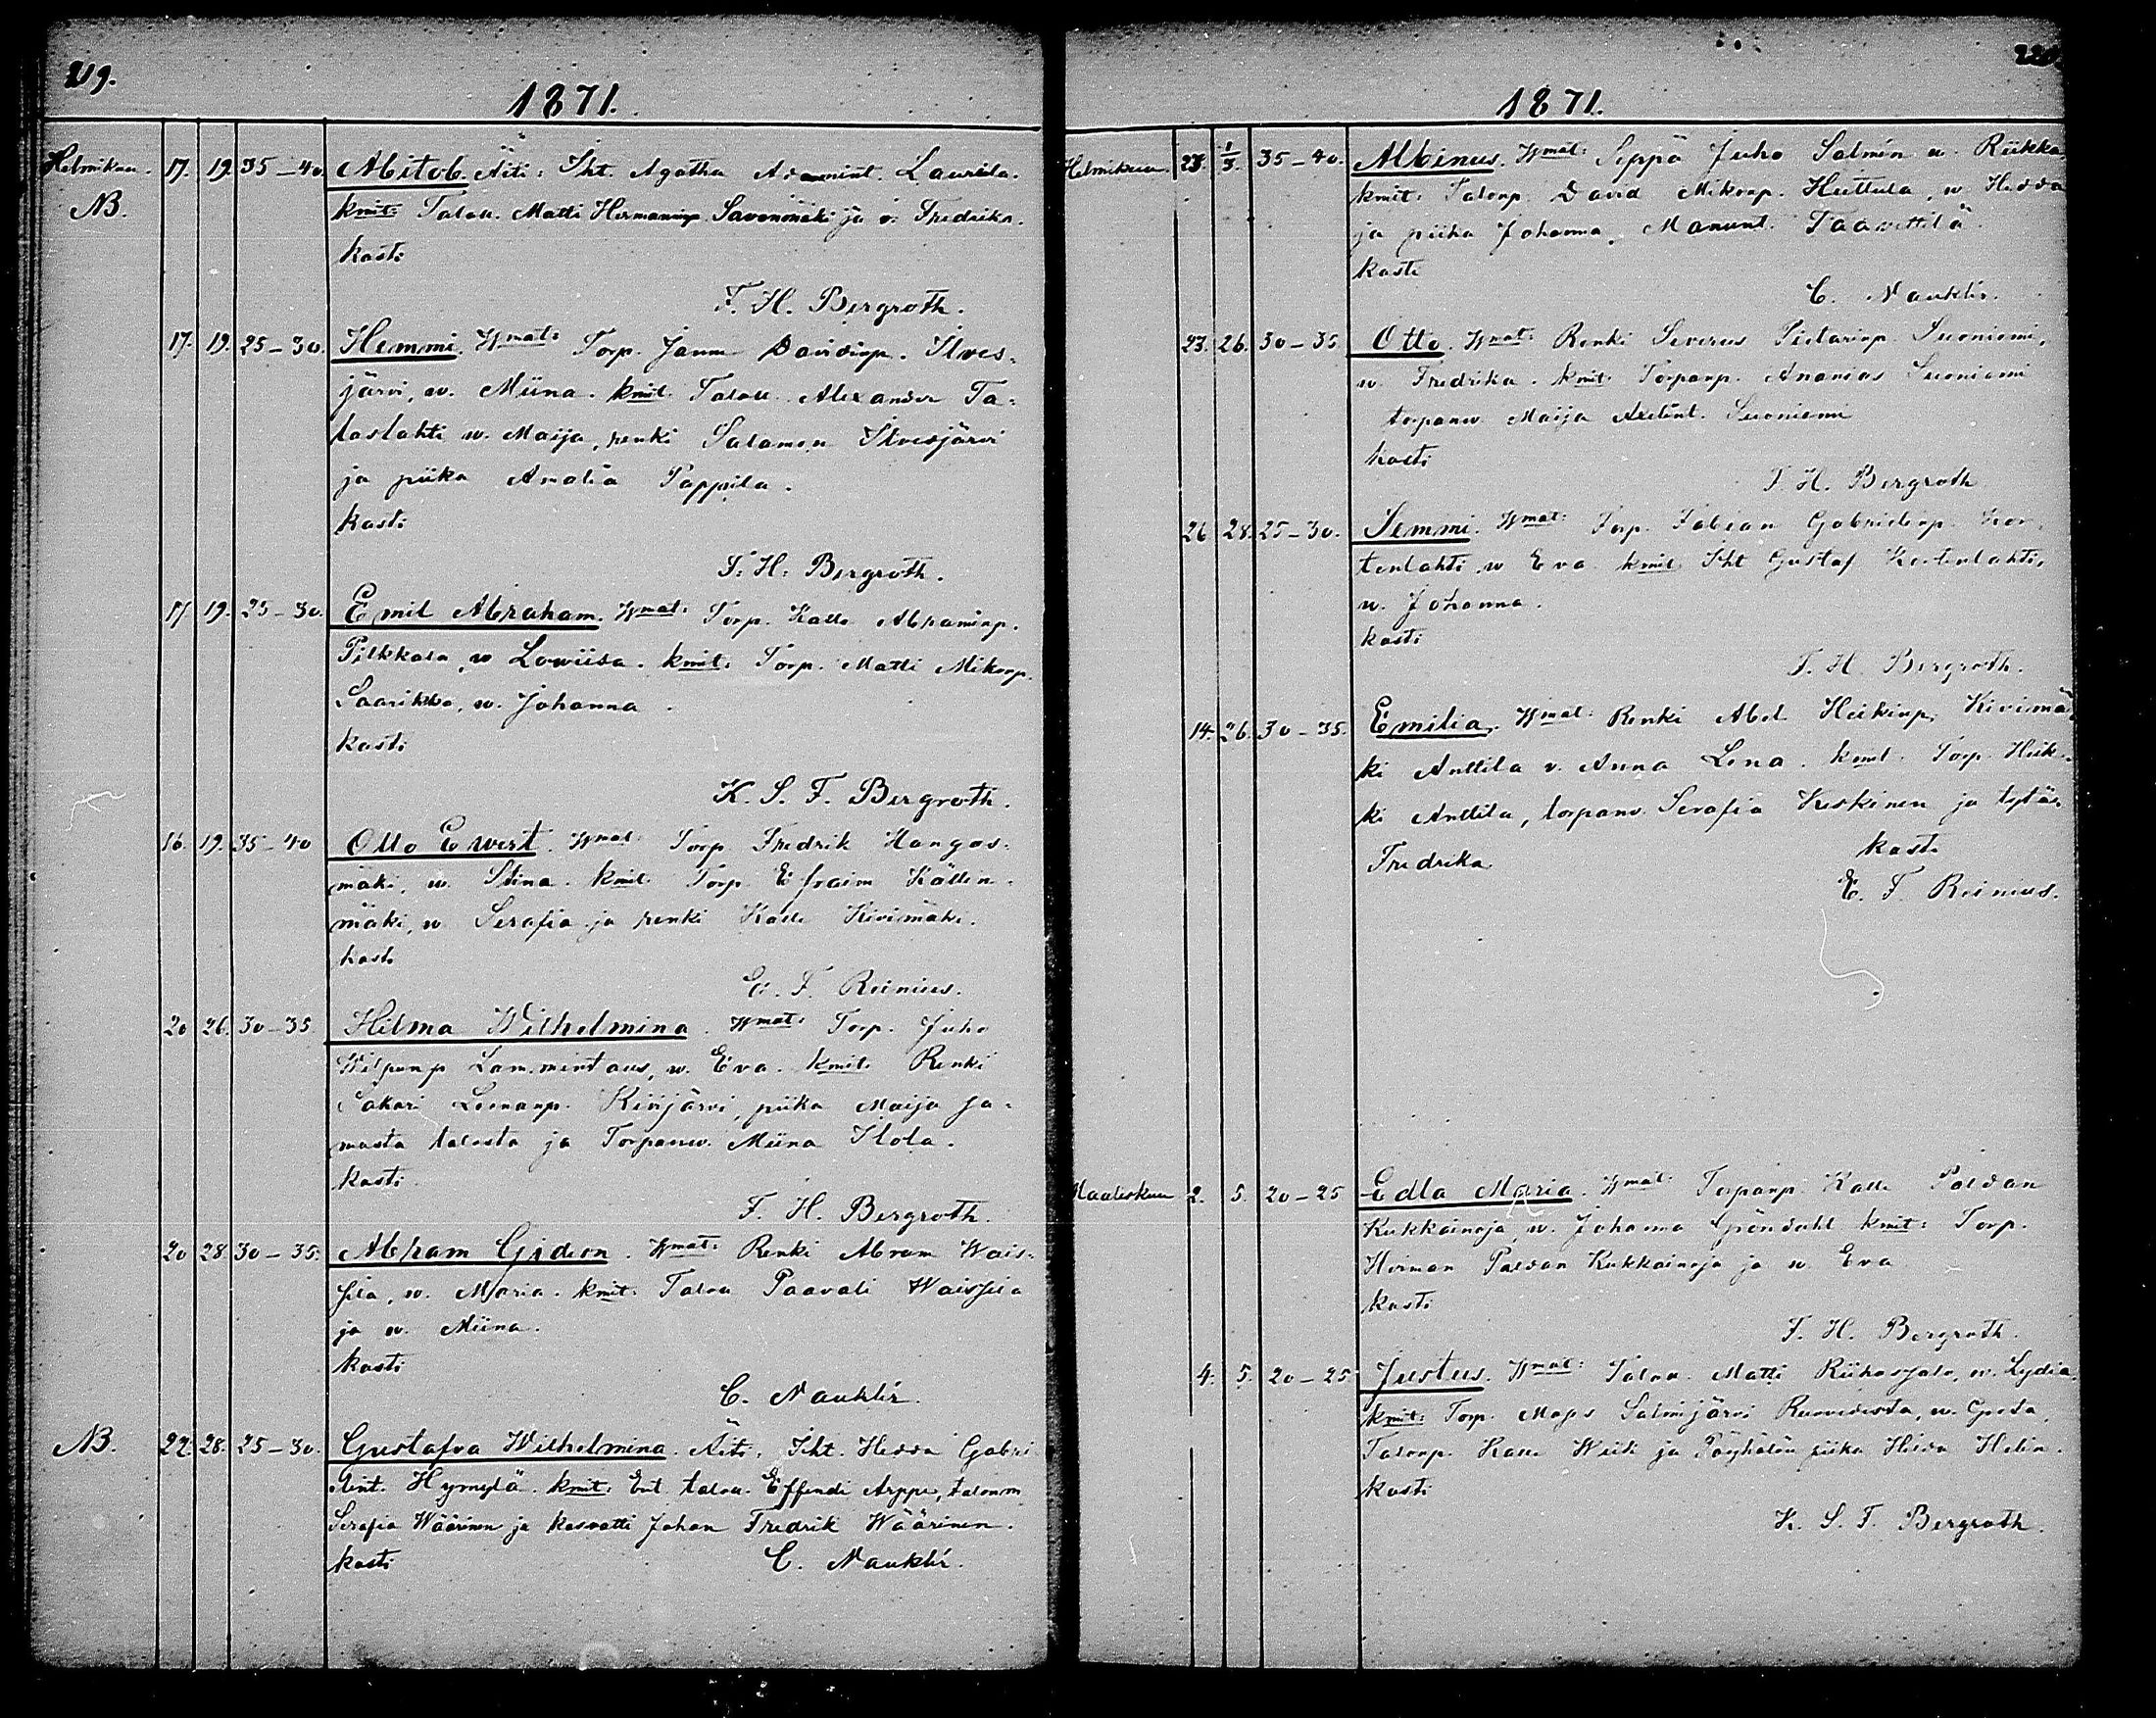 219.
1871.
Helmikuu. 17. 19. 35-40 Abitob. Äiti: Iht. Agatha Adamint. Laurila.
NB. kmit: Talou. Matti Hermaninp. Savonmäki ja v. Fredrika.
kasti
F. H. Bergroth.
17. 19. 25-30. Hemmi. Wmat: Torp. Janne Davidinp. Ilves-
järvi, w. Miina. kmit: Talou. Alexander Ta-
laslahti w. Maija, renki Salamon Ilvesjärvi
ja piika Amalia Pappila.
kasti
F. H. Bergroth.
17. 19. 25-30. Emil Abraham. Wmat: Torp. Kalle Abraminp.
Pilkkala, w Lowiisa. kmit: Torp. Matti Mikonp.
Saarikko, w. Johanna.
kasti
K. S. F. Bergroth.
16. 19. 35-40 Otto Ewert. Wmat: Torp. Fredrik Hangas-
mäki, w. Stina. kmit: Torp. Efraim Källin-
mäki, w Serafia ja renki Kalle Kivimäki.
kasti
E. F. Reinius.
20 26. 30-35 Hilma Wilhelmina. Wmat: Torp. Juho
Wilpunp Lammintaus, w. Eva. kmit: Renki
Sakari Leenanp. Riiijärvi, piika Maija sa-
masta talosta ja Torpanw. Miina Ilola.
kasti
F. H. Bergroth.
20 28. 30-35. Abham Gideon. Wmat: Renki Abram Wais-
sila, w. Maria. kmit: Talou Paavali Waissila
ja w. Miina.
kasti
C. Nauklér.
NB. 22. 28. 25-30. Gustafva Wilhelmina. Äiti: Iht. Hedda Gabri-
elint. Hymylä. kmit: Ent. talou. Effendi Arppe, talonm
Serafia Wäärinen ja kasvatti Johan Fredrik Wäärinen.
kasti C. Nauklér.
220.
1871.
Helmikuu. 23. 1/3. 35-40. Albinus. Wmat: Seppä Juho Salmin w. Riikka,
kmit: Talonp. David Mikonp. Huttula, w. Hedda
ja piika Johanna. Manunt. Taavettila.
kasti
C. Nauklér.
23. 26. 30-35 Otto. Wmat: Renki Severus Pietarinp. Suoniemi,
w. Fredrika. kmit: Torpanp. Ananias Suoniemi
torpanw. Maija Axelint. Suoniemi
kasti
F. H. Bergroth
26 28. 25-30. Semmi. Wmat: Torp. Fabian Gabrielinp. Kor-
tenlahti, w Eva kmit: Iht Gustaf Kortenlahti,
w. Johanna.
kasti
F. H. Bergroth.
14. 26. 30-35. Emilia. Wmat: Renki Abel Heikinp. Kivimä-
ki Anttila v. Anna Lena. kmit: Torp. Heik-
ki Anttila, torpanv. Serafia Keskinen ja tytär
Fredrika kasti
E. F. Reinius.
Maaliskuu 2. 5. 20-25 Edla Maria. Wmat: Torpanp. Kalle Paldan
Kukkainoja, w. Johanna Gröndahl kmit: Torp.
Herman Paldan Kukkainoja ja w. Eva
kasti
F. H. Bergroth.
4. 5. 20-25 Justus. Wmat: Talou. Matti Riihasjalo, w. Lydia.
kmit: Torp. Maps Salmijärvi Ruovedesta, w. Greta,
Talonp. Kalle Wiili ja Pöyhölän piika Hilda Helin.
kasti
K. S. F. Bergroth.